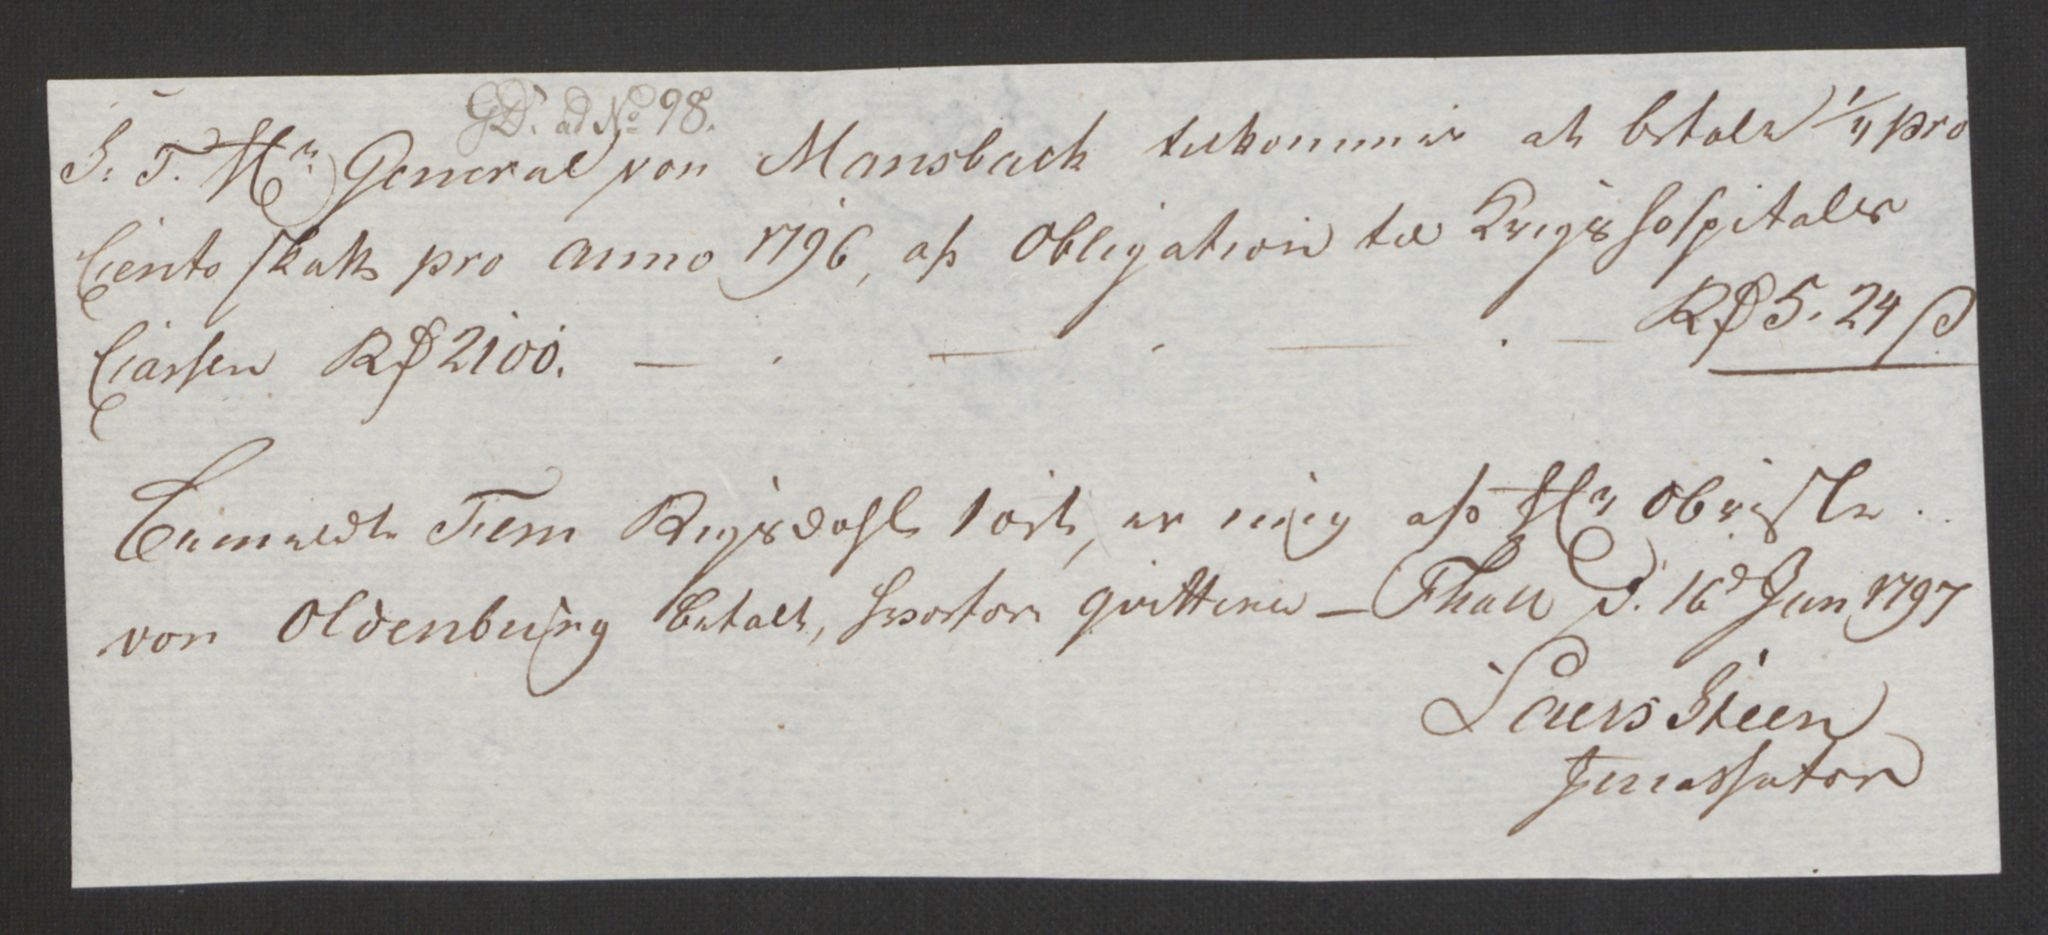 GD. ad No 98.
S. T. Hr General von Mansbach tilkommer at betale 1/4 pro
Cento skatt pro anno 1796, af Obligation til Krigshospitaler
Cassen Rd 2100. — . — . — . — Rd 5. 24 s
Bemeldte Fem Rigsdahl 1 ort, er mig af Hr Obriste
von Oldenburg betalt, hvorfor qvitteres — Fhald d. 16d Jun 1797
Laers Steen